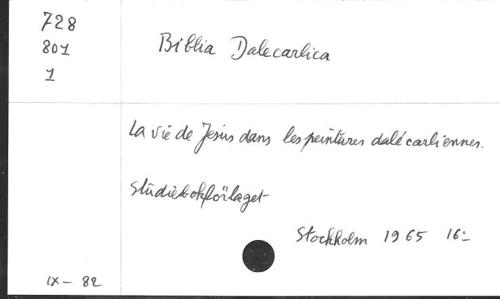 728
801
1
Biblia Dalecarlica
La vie de Jesus dans les peintures dalécarliennes.
Studiebokförlaget
Stockholm 1965 16:
IX - 82